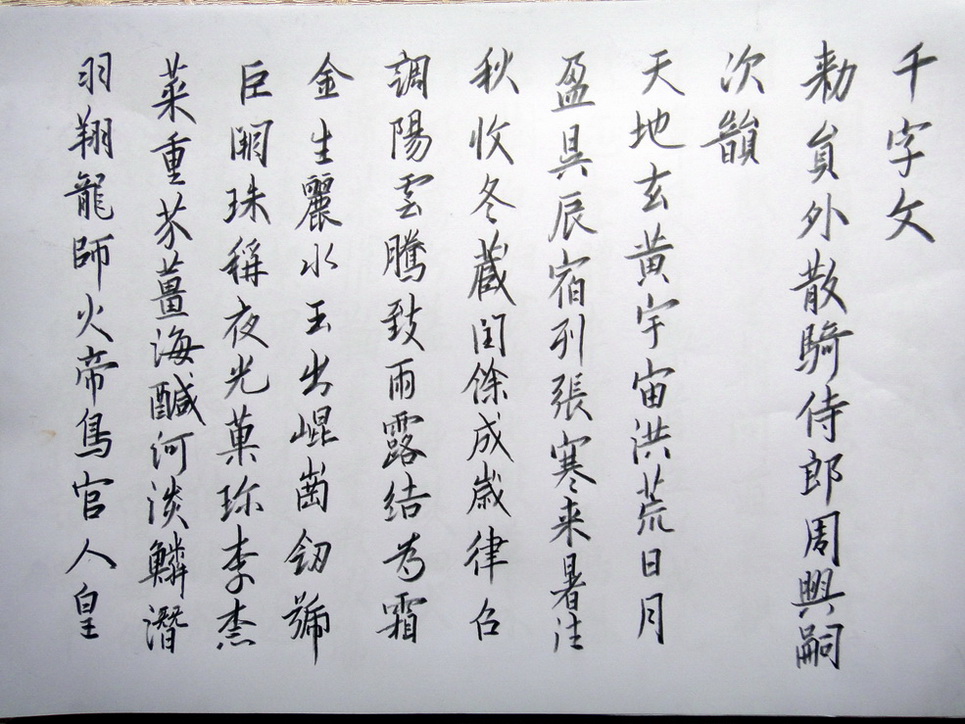 千字文
勅員外散騎侍郎周興嗣
次韻
天地玄黃宇宙洪荒日月
盈昃辰宿列張寒来暑往
秋收冬藏閏餘成歲律召
調陽雲騰致雨露結為霜
金生麗水玉出崐崗劒號
巨闕珠稱夜光菓珎李柰
菜重芥薑海鹹河淡鱗潛
羽翔龍師火帝鳥官人皇